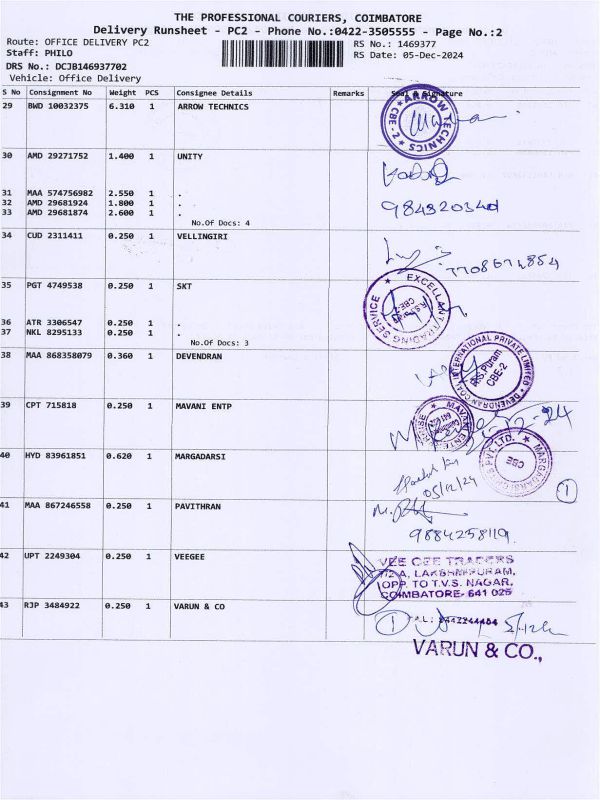 THE PROFESSIONAL COURIERS, COIMBATORE
Delivery Runsheet - PC2 - Phone No.:0422-3505555 - Page No.:2
Route: OFFICE DELIVERY PC2
RS No.: 1469377
Staff: PHILO
RS Date: 05-Dec-2024
DRS No.: DCJB146937702
Vehicle: Office Delivery
S No Consignment No Weight PCS Consignee Details Remarks Seal & Signature
29 BWD 10032375 6.310 1 ARROW TECHNICS
ARROW TECHNICS CBE-2
30 AMD 29271752 1.400 1 UNITY
31 MAA 574756982 2.550 1 .
32 AMD 29681924 1.800 1 .
33 AMD 29681874 2.600 1 .
No.Of Docs: 4
34 CUD 2311411 0.250 1 VELLINGIRI
35 PGT 4749538 0.250 1 SKT
EXCELLANT TRADING SERVICE CBE-2
36 ATR 3306547 0.250 1 .
37 NKL 8295133 0.250 1 .
No.Of Docs: 3
38 MAA 868358079 0.360 1 DEVENDRAN
DEVENDRAN COAL INTERNATIONAL PRIVATE LIMITED
R.S.Puram
CBE-2
39 CPT 715818 0.250 1 MAVANI ENTP
40 HYD 83961851 0.620 1 MARGADARSI
CBE
05/12/24
1
41 MAA 867246558 0.250 1 PAVITHRAN
9884258119.
42 UPT 2249304 0.250 1 VEEGEE
VEE GEE TRADERS
7/2 A, LAKSHMIPURAM,
OPP. TO T.V.S. NAGAR,
COIMBATORE- 641 025
43 RJP 3484922 0.250 1 VARUN & CO
1
VARUN & CO.,